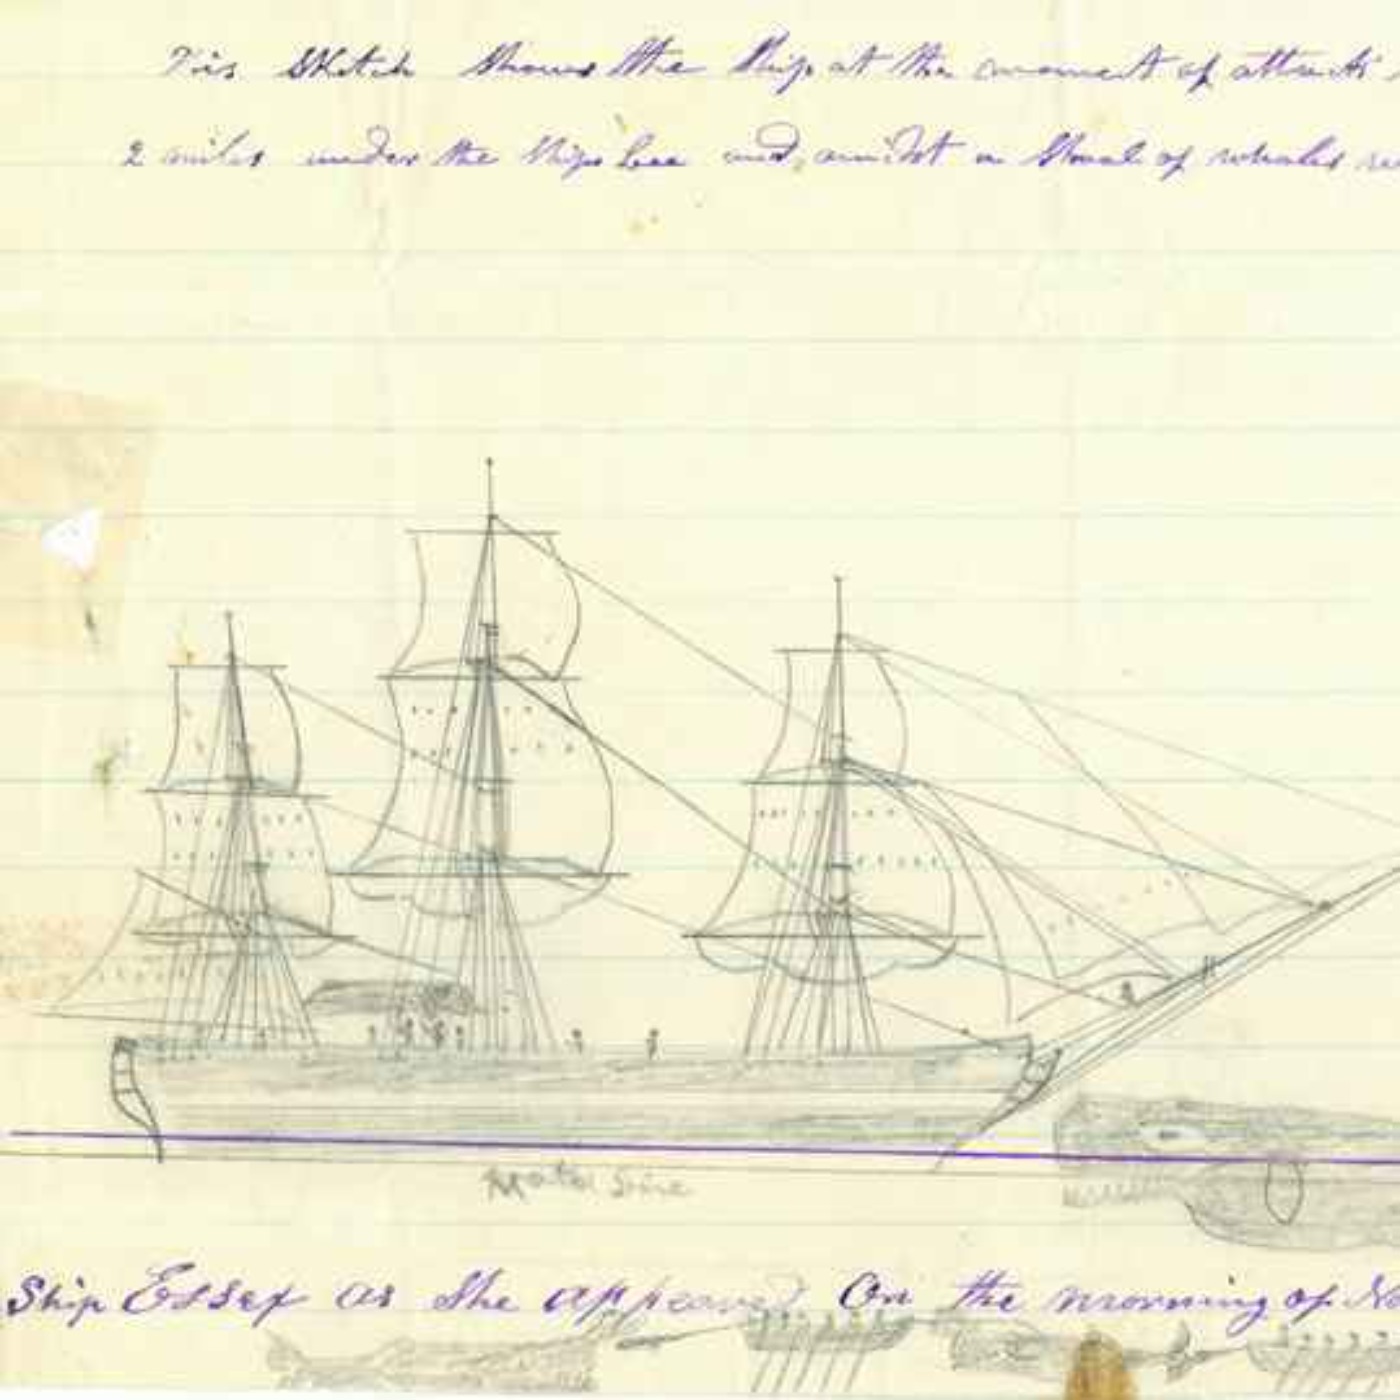 Tis Sketch Shows the Ship at the moment of attack
2 miles under the Ships Lee and, amidst a Shoal of whales
Water Line
Ship Essex as She appeared On the morning of